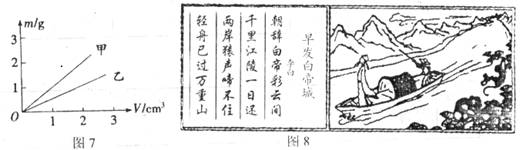 m/g
3
2
1
O
1
2
3
V/cm³
甲
乙
图7
早发白帝城
李白
朝辞白帝彩云间
千里江陵一日还
两岸猿声啼不住
轻舟已过万重山
图8